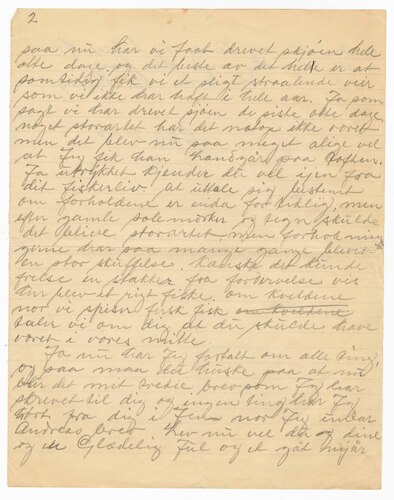 2.
saa nu har vi faat drevet skjøen hele
otte dage og det beste av det hele er at
samtidig fik vi et sligt straalende veir
som vi ikke har haft i hele aar. Ja som
sagt vi har drevet sjøen de siste otte dage
noget storartet har det ikke voret
men det blev nu saa meget alige vel
at Jeg fik han handgår paa
Ja utrykket kjender du vel igen fra
dit fiskerliv. At uttale sig bestemt
om forholdene er enda for tidlig, men
efter gamle solemerker og tegn skulde
det blive storartet, men
gerne har saa mange gange blevet
en stor skuffelse. Kanske det kunde
frelse en stakker fra fordervelse vis
der blev et rigt fiske. om kveldene
nor vi spiser fersk fisk om kveldene
taler vi om dig at du skulde have
voret i vores midte
Ja nu har Jeg fortalt om alle ting,
og saa maa du huske paa at nu
er det mit tredie brev som Jeg har
skrevet til dig og ingen ting har Jeg
hørt fra dig i nor Jeg
Andreas brev. Lev nu vel du og dine
og en Glædelig Jul og et gåt nyår